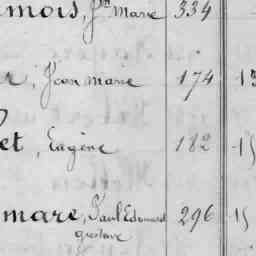 mois, Jn Marie 334
r, Jean Marie 174 13
et, Eugène 182 15
mare, Paul Edouard 296 15
gustave